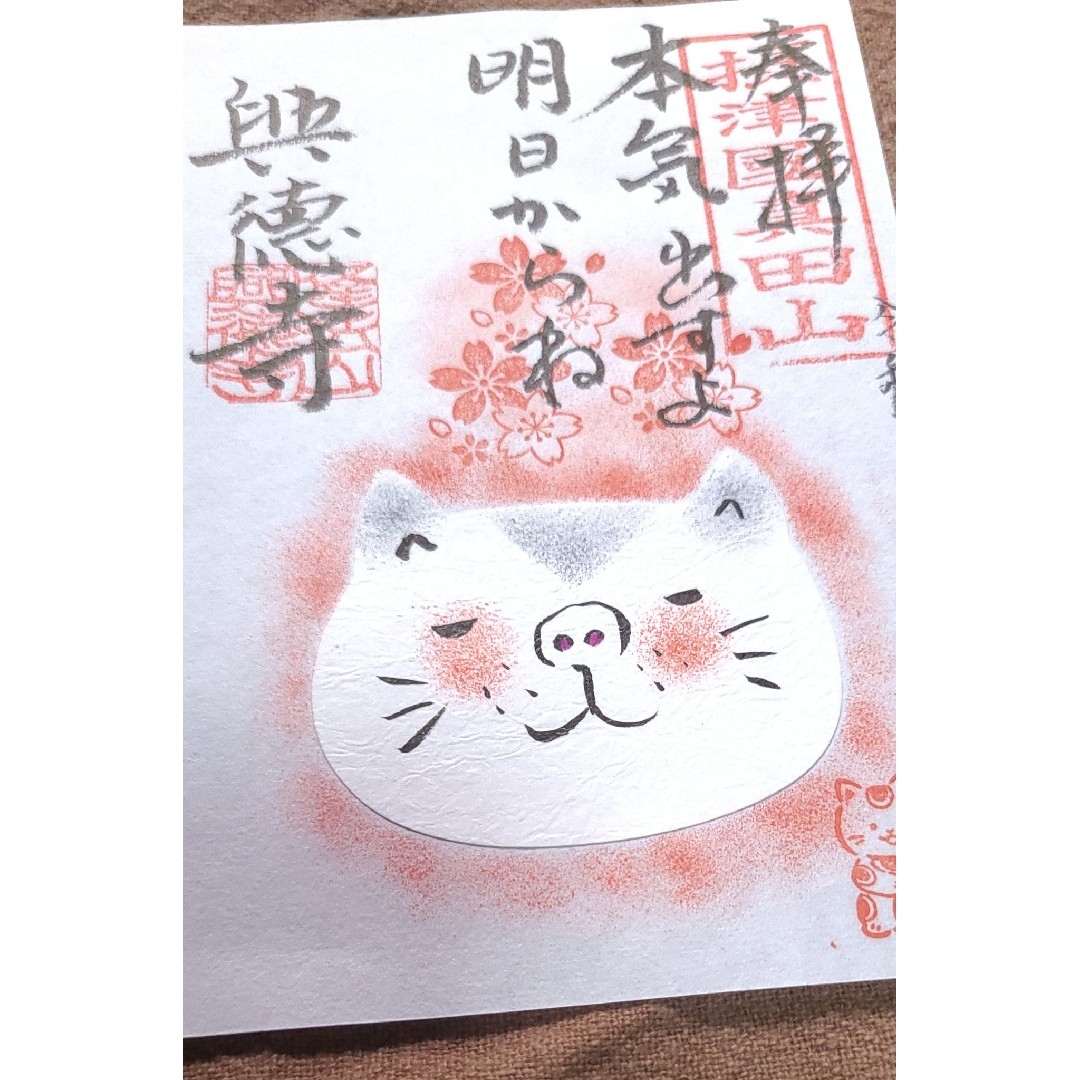 奉拝
摂津國真田山
本気出すよ
明日からね
興徳寺